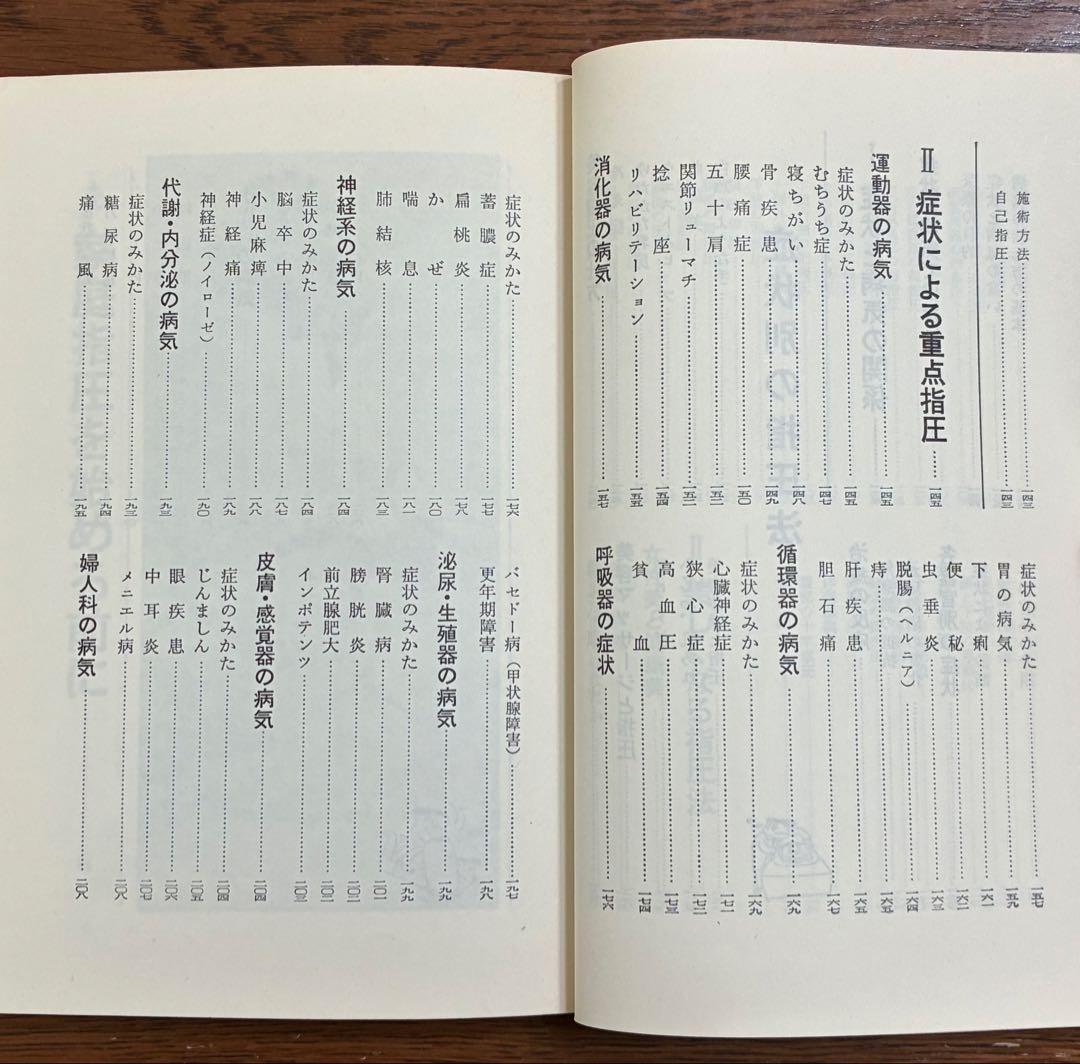 施術方法……一四三
自己指圧……一四三
Ⅱ 症状による重点指圧……一四五
運動器の病気……一四五
症状のみかた……一四五
むちうち症……一四七
寝ちがい……一四八
骨疾患……一四九
腰痛症……一五〇
五十肩……一五二
関節リューマチ……一五二
捻座……一五四
リハビリテーション……一五五
消化器の病気……一五七
症状のみかた……一五七
胃の病気……一五九
下痢……一六一
便秘……一六二
虫垂炎……一六三
脱腸(ヘルニア)……一六四
痔……一六五
肝疾患……一六五
胆石痛……一六七
循環器の病気……一六九
症状のみかた……一六九
心臓神経症……一七一
狭心症……一七二
高血圧……一七三
貧血……一七四
呼吸器の症状……一七六
症状のみかた……一七六
蓄膿症……一七七
扁桃炎……一七八
かぜ……一八〇
喘息……一八一
肺結核……一八三
神経系の病気……一八四
症状のみかた……一八四
脳卒中……一八七
小児麻痺……一八八
神経痛……一八九
神経症(ノイローゼ)……一九〇
代謝・内分泌の病気……一九三
症状のみかた……一九三
糖尿病……一九四
痛風……一九五
バセドー病(甲状腺障害)……一九七
更年期障害……一九八
泌尿・生殖器の病気……一九九
症状のみかた……一九九
腎臓病……二〇一
膀胱炎……二〇二
前立腺肥大……二〇二
インポテンツ……二〇三
皮膚・感覚器の病気……二〇四
症状のみかた……二〇四
じんましん……二〇五
眼疾患……二〇六
中耳炎……二〇七
メニエル病……二〇八
婦人科の病気……二〇八